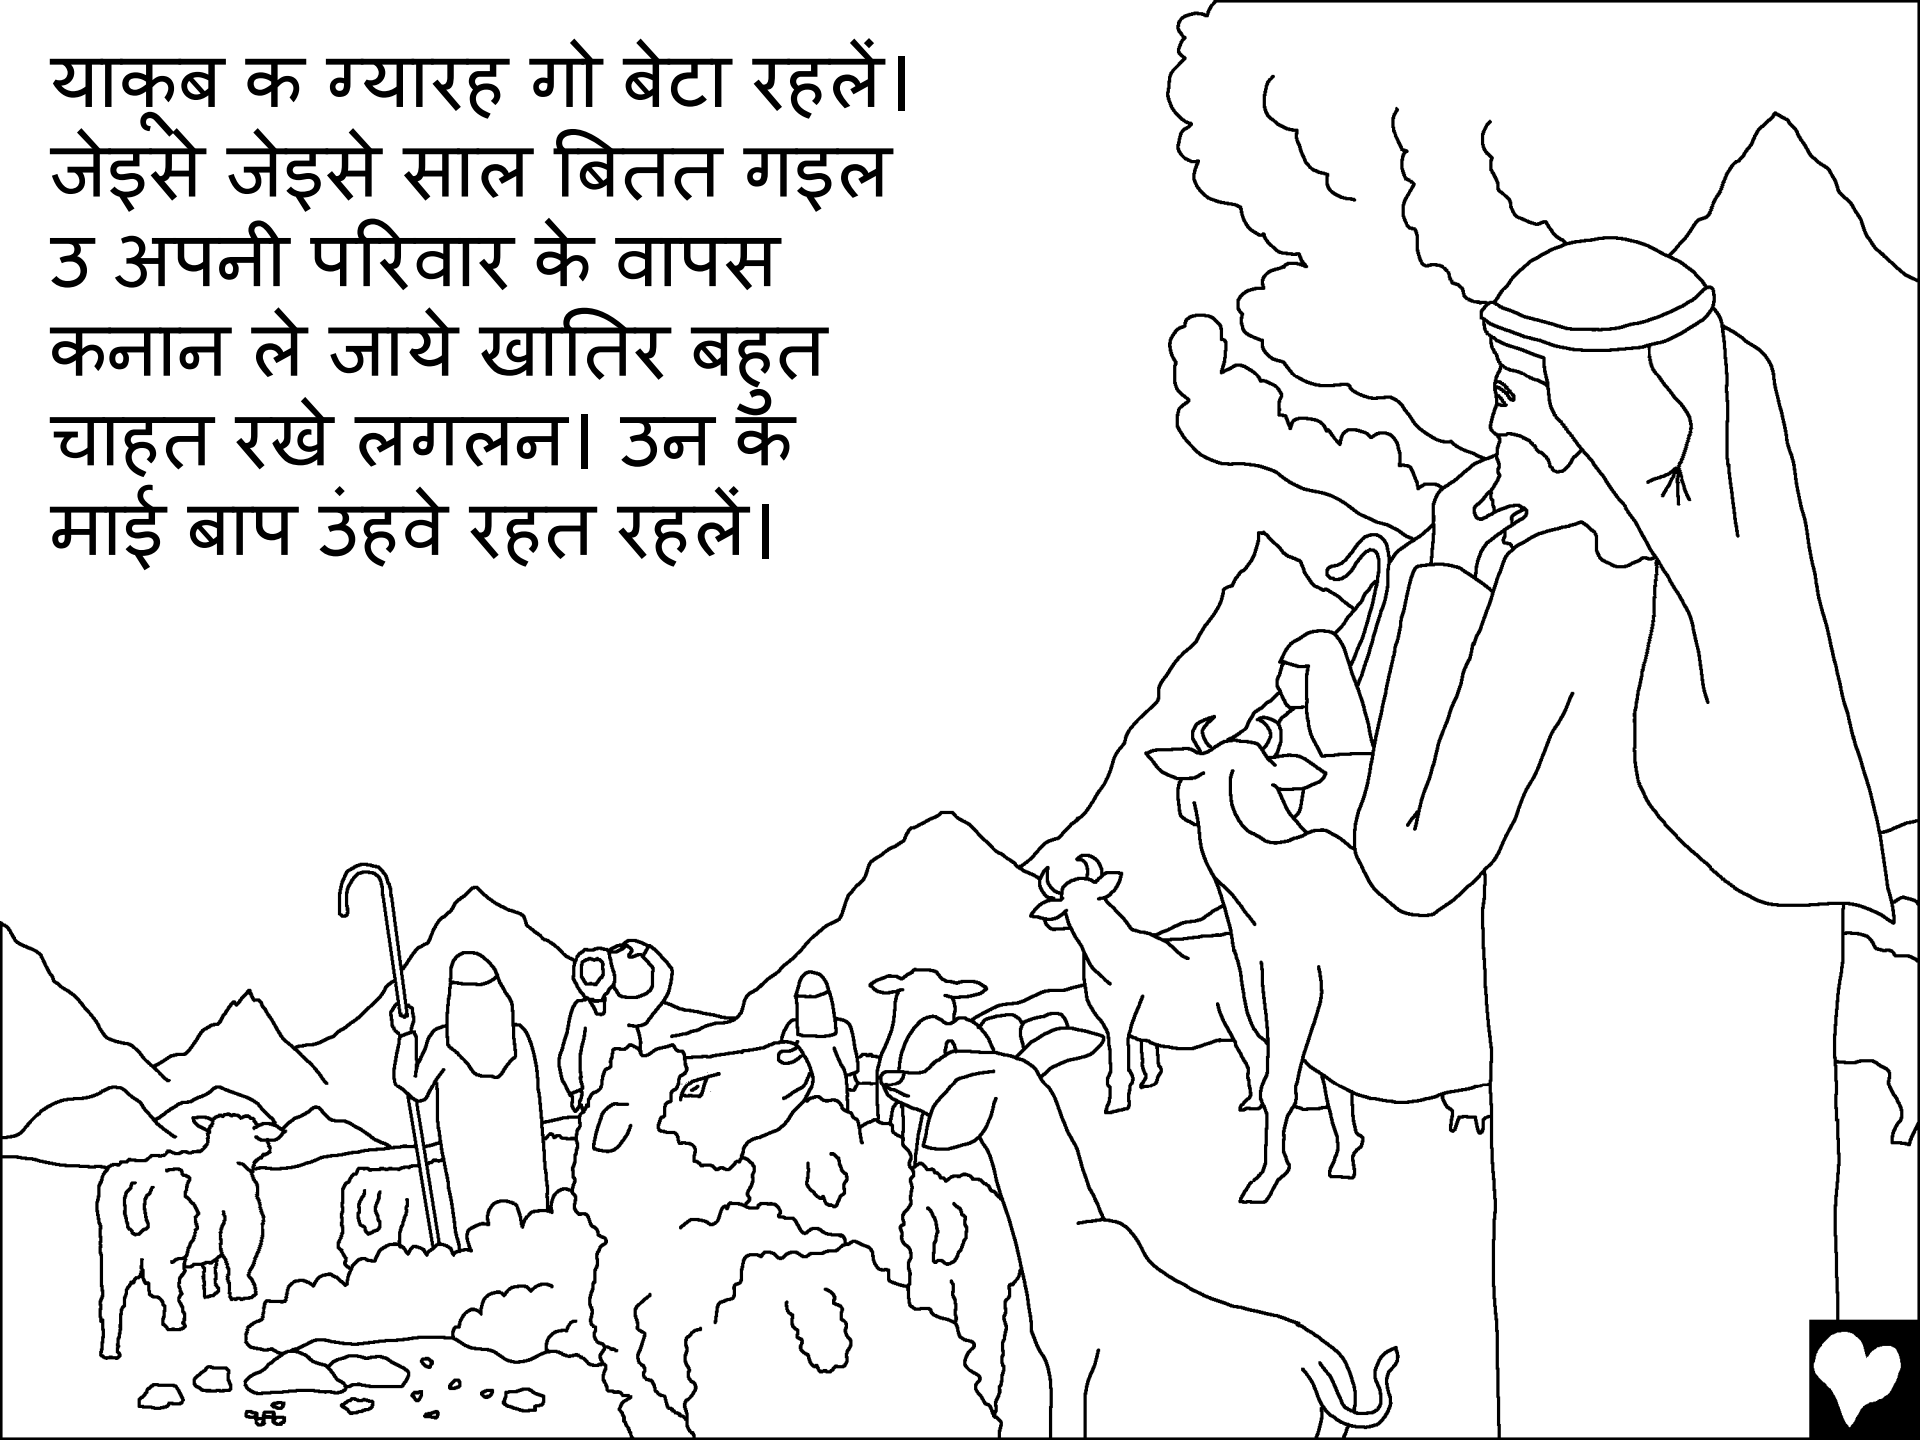 याकूब क ग्यारह गो बेटा रहलें।
जेइसे जेइसे साल बितत गइल
उ अपनी परिवार के वापस
कनान ले जाये खातिर बहुत
चाहत रखे लगलन। उन के
माई बाप उंहवे रहत रहलें।